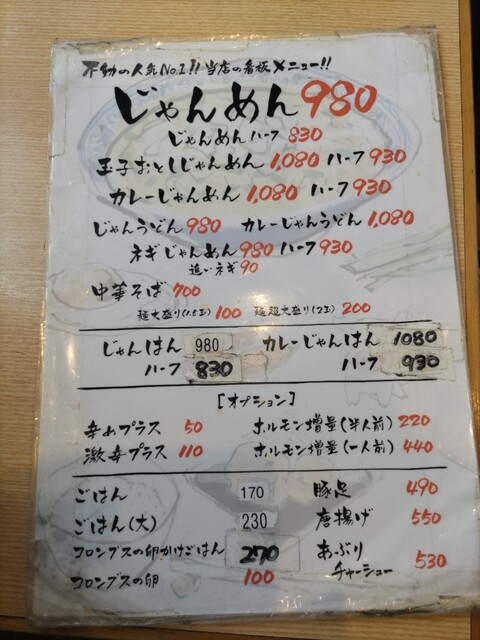 不動の人気No.1!! 当店の看板メニュー!!
じゃんめん 980
じゃんめん ハーフ 830
玉子おとしじゃんめん 1,080 ハーフ 930
カレーじゃんめん 1,080 ハーフ 930
じゃんうどん 980 カレーじゃんうどん 1,080
ネギじゃんめん 980 ハーフ 930
追いネギ 90
中華そば 700
麺大盛り(1.5玉) 100 麺超大盛り(2玉) 200
じゃんはん 980 カレーじゃんはん 1080
ハーフ 830 ハーフ 930
[オプション]
辛めプラス 50 ホルモン増量(半人前) 220
激辛プラス 110 ホルモン増量(一人前) 440
ごはん 170 豚足 490
ごはん(大) 230 唐揚げ 550
コロンブスの卵かけごはん 270 あぶりチャーシュー 530
コロンブスの卵 100